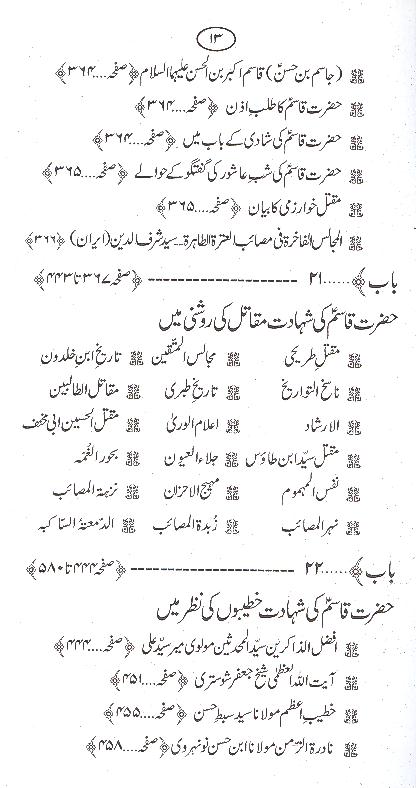 ۱۳
(جاسم بن حسنؑ) قاسم اکبر بن الحسن علیہما السلام ﴿صفحہ....۳۶۴﴾
حضرت قاسمؑ کا طلبِ اذن ﴿صفحہ....۳۶۴﴾
حضرت قاسمؑ کی شادی کے باب میں ﴿صفحہ....۳۶۴﴾
حضرت قاسمؑ کی شبِ عاشور کی گفتگو کے حوالے ﴿صفحہ....۳۶۵﴾
مقتل خوارزمی کا بیان ﴿صفحہ....۳۶۵﴾
المجالس الفاخرۃ فی مصائب العترۃ الطاہرۃ۔ سیّد شرف الدین (ایران) ﴿۳۶۶﴾
باب ﴾......۲۱ ---------------- ﴿صفحہ ۳۶۷ تا ۴۴۳﴾
حضرت قاسمؑ کی شہادت مقاتل کی روشنی میں
مقتلِ طریحی مجالس المتّقین تاریخِ ابنِ خلدون
ناسخ التواریخ تاریخِ طبری مقاتل الطالبین
الارشاد اعلام الوریٰ مقتل الحسین ابی مخنف
مقتل سیّد ابن طاؤس جلاء العیون بحور الغُمّہ
نفس المہموم مہیج الاحزان نزہۃ المصائب
نہر المصائب زُبدۃ المصائب الدّمعۃ السّاکبہ
باب ﴾......۲۲ ---------------- ﴿صفحہ ۴۴۴ تا ۵۸۰﴾
حضرت قاسمؑ کی شہادت خطیبوں کی نظر میں
افضل الذاکرین سیّد المحدثین مولوی میر سیّد علی ﴿صفحہ....۴۴۴﴾
آیت اللہ العظمٰی شیخ جعفر شوستری ﴿صفحہ....۴۵۱﴾
خطیبِ اعظم مولانا سیّد سبطِ حسن ﴿صفحہ....۴۵۵﴾
نادرۃ الزّمن مولانا ابن حسن نونہروی ﴿صفحہ....۴۵۸﴾